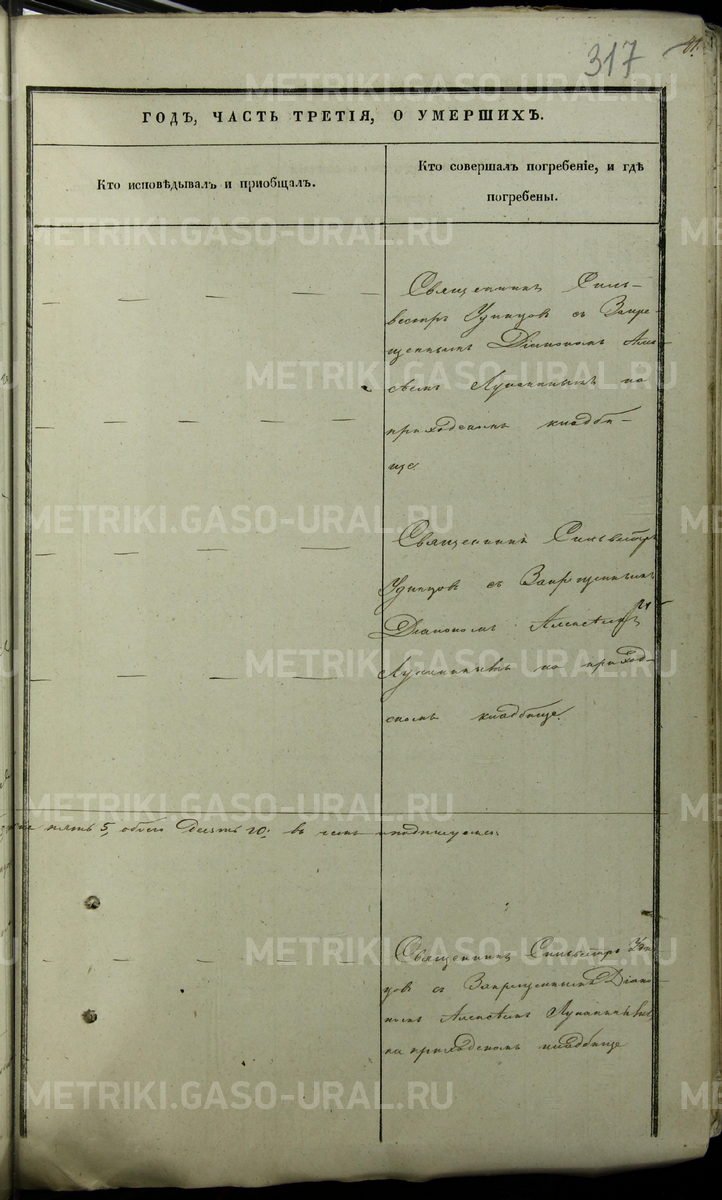 317
81.
ГОДЪ, ЧАСТЬ ТРЕТІЯ, О УМЕРШИХЪ.
Кто исповѣдывалъ и пріобщалъ.
Кто совершалъ погребеніе, и гдѣ
погребены.
Священникъ Силь-
вестръ Удинцов съ Запре-
щеннымъ Діакономъ Алек-
сѣемъ на
приходскомъ кладби-
ще
Священникъ Сильвестръ
Удинцов съ Запрещеннымъ
Діакономъ Алексѣем
на приход-
скомъ кладбище.
пять 5, обоего Десять 10. въ чемъ и подпишуемся:
Священникъ Сильвестръ Удин-
цов съ Запрещеннымъ Діако-
номъ Алексѣем
на приходскомъ кладбище
METRIKI.GASO-URAL.RU